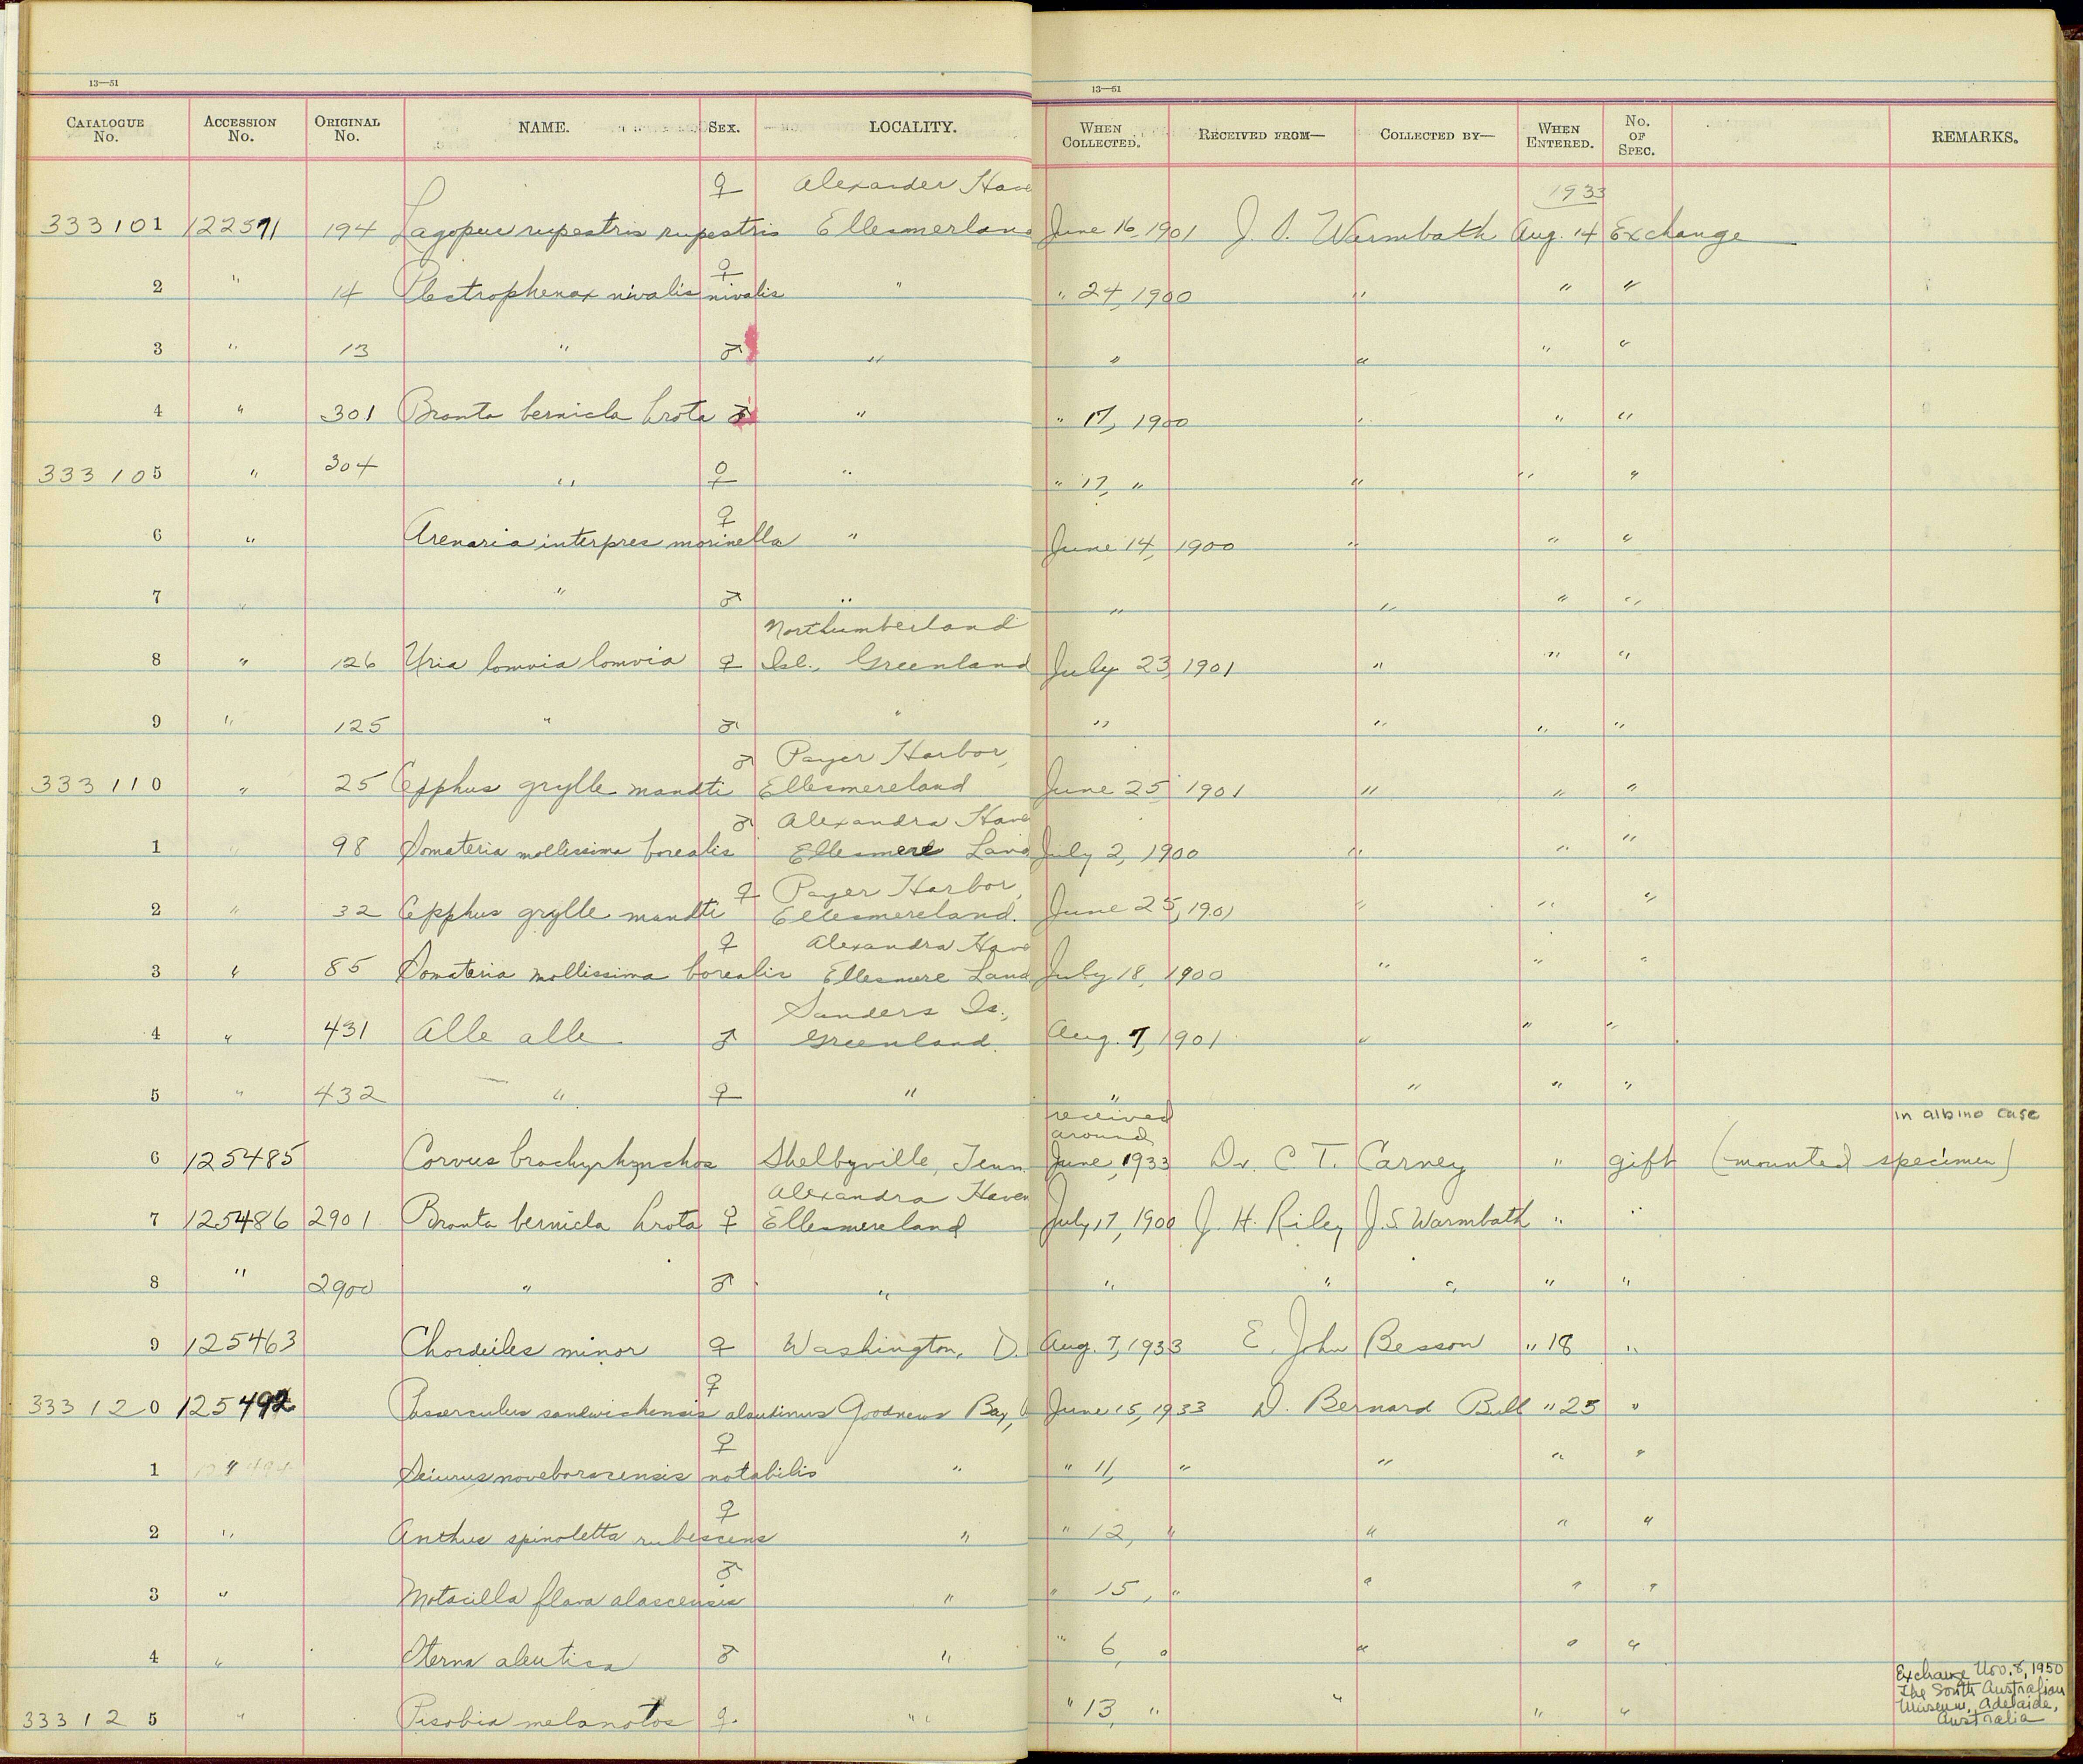 13—51
13—51
CATALOGUE No. ACCESSION No. ORIGINAL No. NAME. SEX. LOCALITY. WHEN COLLECTED. RECEIVED FROM— COLLECTED BY— WHEN ENTERED. No. OF SPEC. REMARKS.
♀ Alexander Have 1933
333101 122571 194 Lagopus rupestris rupestris Ellesmerland June 16, 1901 J. S. Warmbath Aug. 14 Exchange
♀
2 " 14 Plectrophenax nivalis nivalis " " 24, 1900 " " "
3 " 13 " ♂ " " " " "
4 " 301 Branta bernicla hrota ♂ " " 17, 1900 " " "
333105 " 304 " ♀ " " 17, " " " "
♀
6 " Arenaria interpres morinella " June 14, 1900 " " "
7 " " ♂ " " " " "
Northumberland
8 " 126 Uria lomvia lomvia ♀ Isl., Greenland July 23, 1901 " " "
9 " 125 " ♂ " " " " "
♂ Payer Harbor,
333110 " 25 Cepphus grylle mandti Ellesmereland June 25, 1901 " " "
♂ Alexandra Have
1 " 98 Somateria mollissima borealis Ellesmere Land July 2, 1900 " " "
♀ Payer Harbor,
2 " 32 Cepphus grylle mandti Ellesmereland. June 25, 1901 " " "
♀ Alexandra Have
3 " 85 Somateria mollissima borealis Ellesmere Land July 18, 1900 " " "
Sanders Is.,
4 " 431 Alle alle ♂ Greenland. Aug. 7, 1901 " " "
5 " 432 " ♀ " " " " "
received around in albino case
6 125485 Corvus brachyrhynchos Shelbyville, Tenn. June, 1933 Dr. C T. Carney " gift (mounted specimen)
Alexandra Haven
7 125486 2901 Branta bernicla hrota ♀ Ellesmereland July 17, 1900 J. H. Riley J. S. Warmbath " "
8 " 2900 " ♂ " " " " " "
9 125463 Chordeiles minor ♀ Washington, D. Aug. 7, 1933 E. John Besson " 18 "
♀
333120 125492 Passerculus sandwichensis alaudinus Goodnews Bay, June 15, 1933 D. Bernard Bull " 25 "
♀
1 " Seiurus noveboracensis notabilis " " 11, " " " "
♀
2 " Anthus spinoletta rubescens " " 12, " " " "
♂
3 " Motacilla flava alascensis " " 15, " " " "
4 " Sterna aleutica ♂ " " 6, " " " "
Exchange Nov. 8, 1950
The South Australian
Museum, Adelaide,
Australia
333125 " Pisobia melanotos ♀. " " 13, " " " "